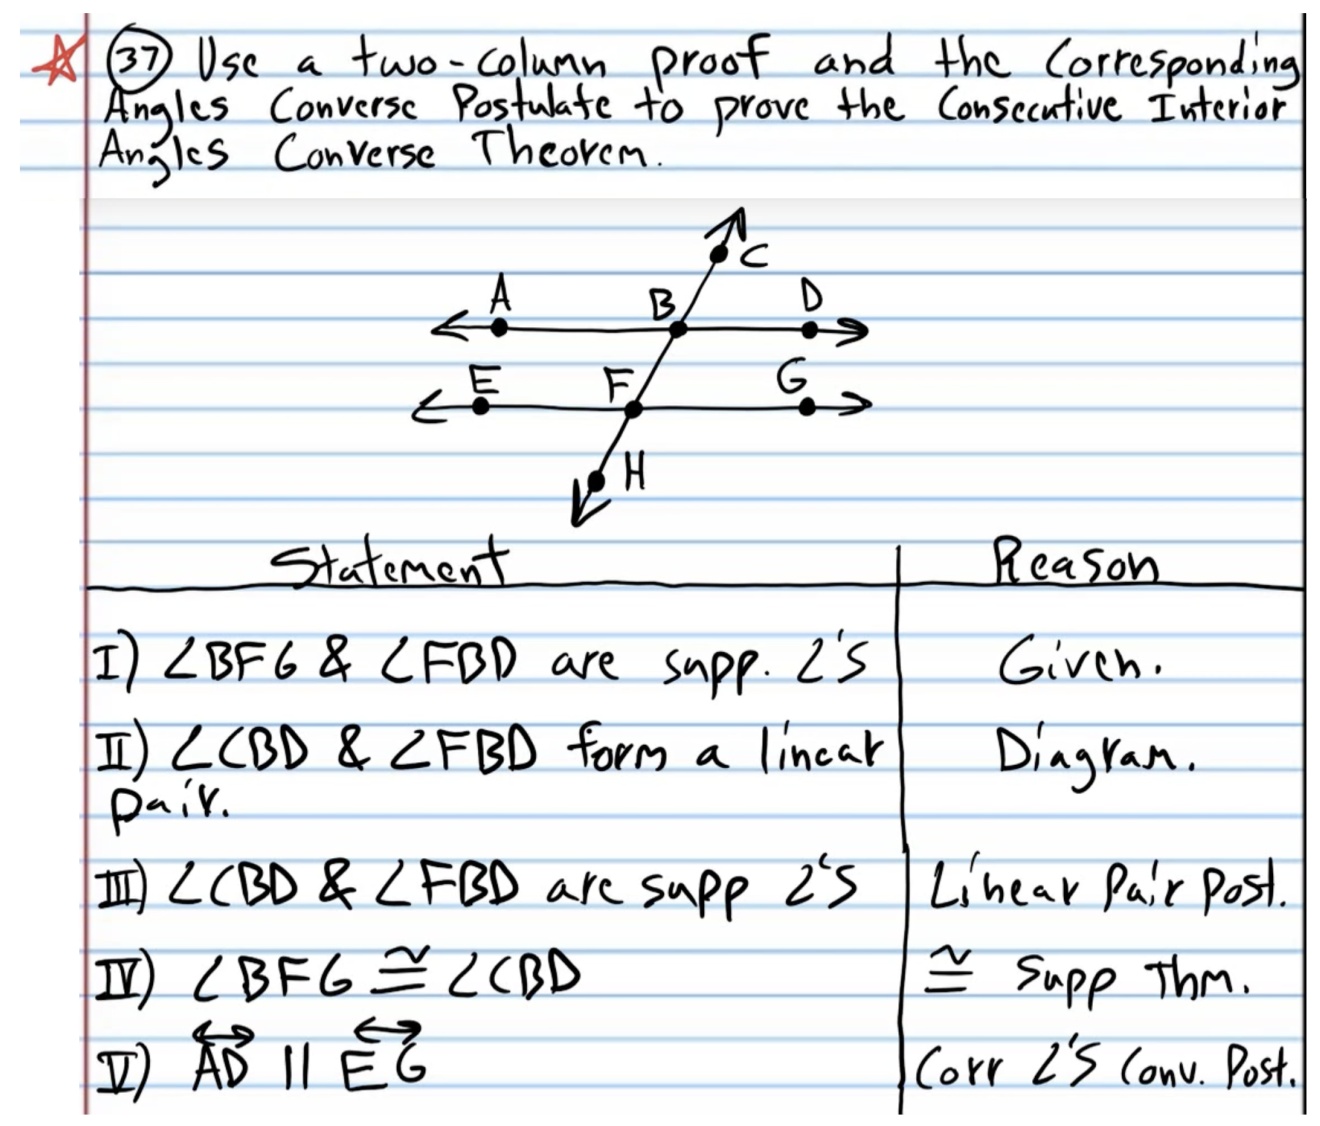 37 Use a two-column proof and the Corresponding
Angles Converse Postulate to prove the Consecutive Interior
Angles Converse Theorem.
C
A B D
E F G
H
Statement Reason
I) ∠BFG & ∠FBD are supp. ∠'s Given.
II) ∠CBD & ∠FBD form a linear Diagram.
pair.
III) ∠CBD & ∠FBD are supp ∠'s Linear Pair Post.
IV) ∠BFG ≅ ∠CBD ≅ Supp Thm.
V) AD || EG Corr ∠'s Conv. Post.